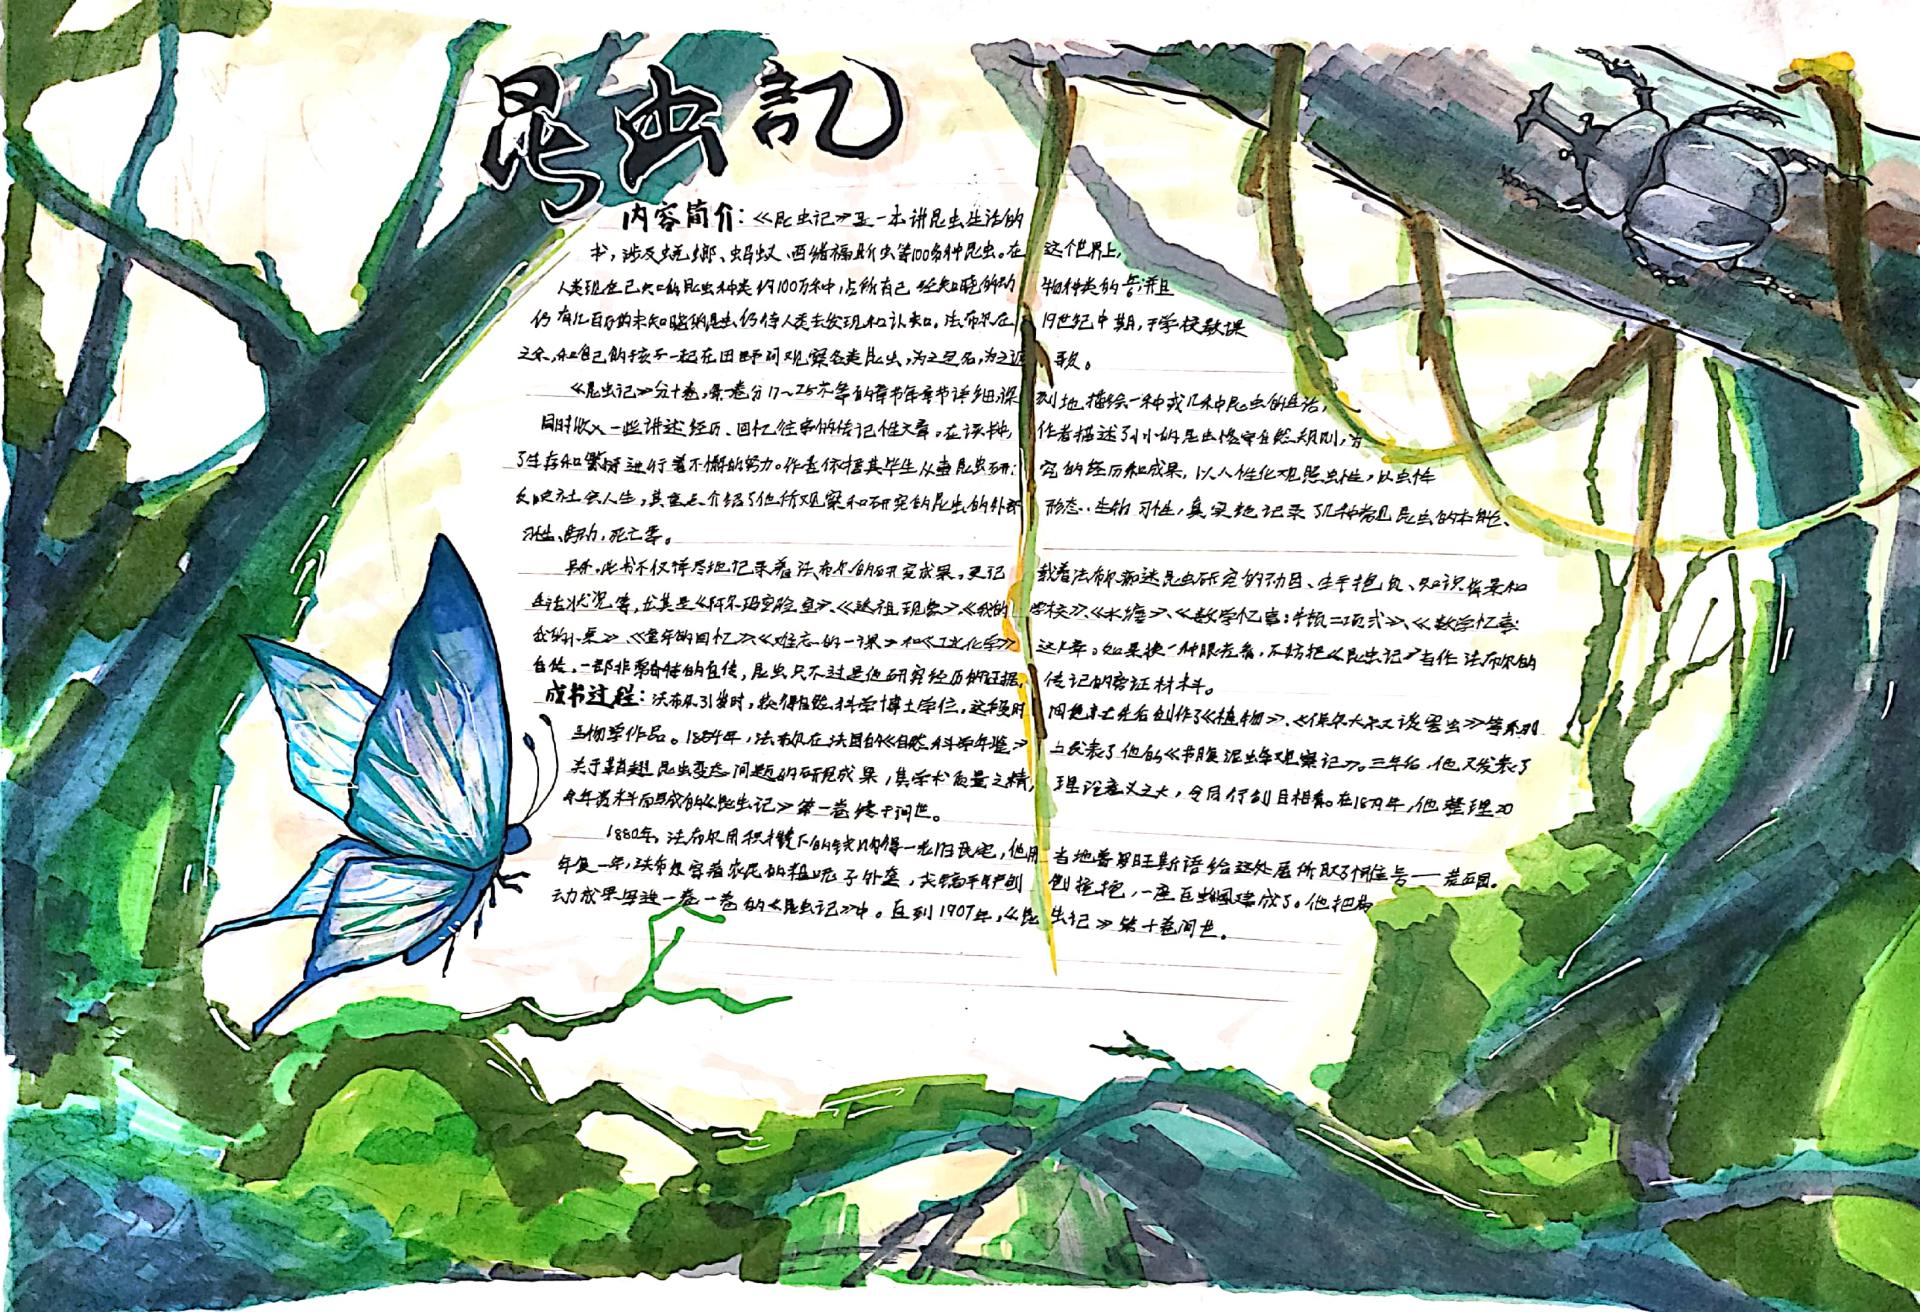 昆虫記
内容简介：《昆虫记》是一本讲昆虫生活的
书，涉及蜣螂、蚂蚁、西绪福斯虫等100多种昆虫。在这个世界上，
人类现在已知的昆虫种类约100万种，占所有已经知晓的动物种类的 并且
仍有几百万种未知晓的昆虫仍待人类去发现和认知。法布尔在19世纪中期，于学校教课
之余，和自己的孩子一起在田野间观察各类昆虫，为之定名，为之 歌。
《昆虫记》分十卷，每卷分17～25不等的章节每章节详细，深刻地描绘一种或几种昆虫的生活，
同时收入一些讲述经历、回忆往事的传记性文章。在该书中 作者描述了小小的昆虫恪守自然规则，为
了生存和繁衍进行着不懈的努力。作者依据其毕生从事昆虫研究的经历和成果，以人性化观照虫性，以虫性
反映社会人生，其重点介绍了他所观察和研究的昆虫的外部形态、生物习性，真实地记录了几种常见昆虫的本能、
习性、劳动、死亡等。
另外，此书不仅详尽地记录着法布尔的研究成果，更记载着法布尔痴迷昆虫研究的动因、生平抱负、知识背景和
生活状况等，尤其是《阿尔玛实验室》、《返祖现象》、《我的学校》、《水塘》、《数学忆事：牛顿二项式》、《数学忆事：
我的小桌》、《童年的回忆》、《难忘的一课》和《工业化学》这几章。如果换一种眼光看，不妨把《昆虫记》当作法布尔的
自传，一部非常奇特的自传，昆虫只不过是他研究经历的证据，传记的旁证材料。
成书过程：法布尔31岁时，获得自然科学博士学位。这段时间他才先后创作了《植物》、《保尔大叔谈害虫》等系列
生物学作品。1854年，法布尔在法国的《自然科学年鉴》上发表了他的《节腹泥蜂观察记》。三年后，他又发表了
关于鞘翅昆虫变态问题的研究成果，其学术质量之精，理论意义之大，令同行刮目相看。在1879年，他整理20
年资料而写成的《昆虫记》第一卷终于问世。
1880年，法布尔用积攒下的钱购得一老旧民宅，他用当地普罗旺斯语给这处居所取了个雅号——荒石园。
年复一年，法布尔穿着农民的粗呢子外套，尖镐平铲刨刨挖挖，一座百虫园建成了。他把劳
动成果写进一卷一卷的《昆虫记》中。直到1907年，《昆虫记》第十卷问世。